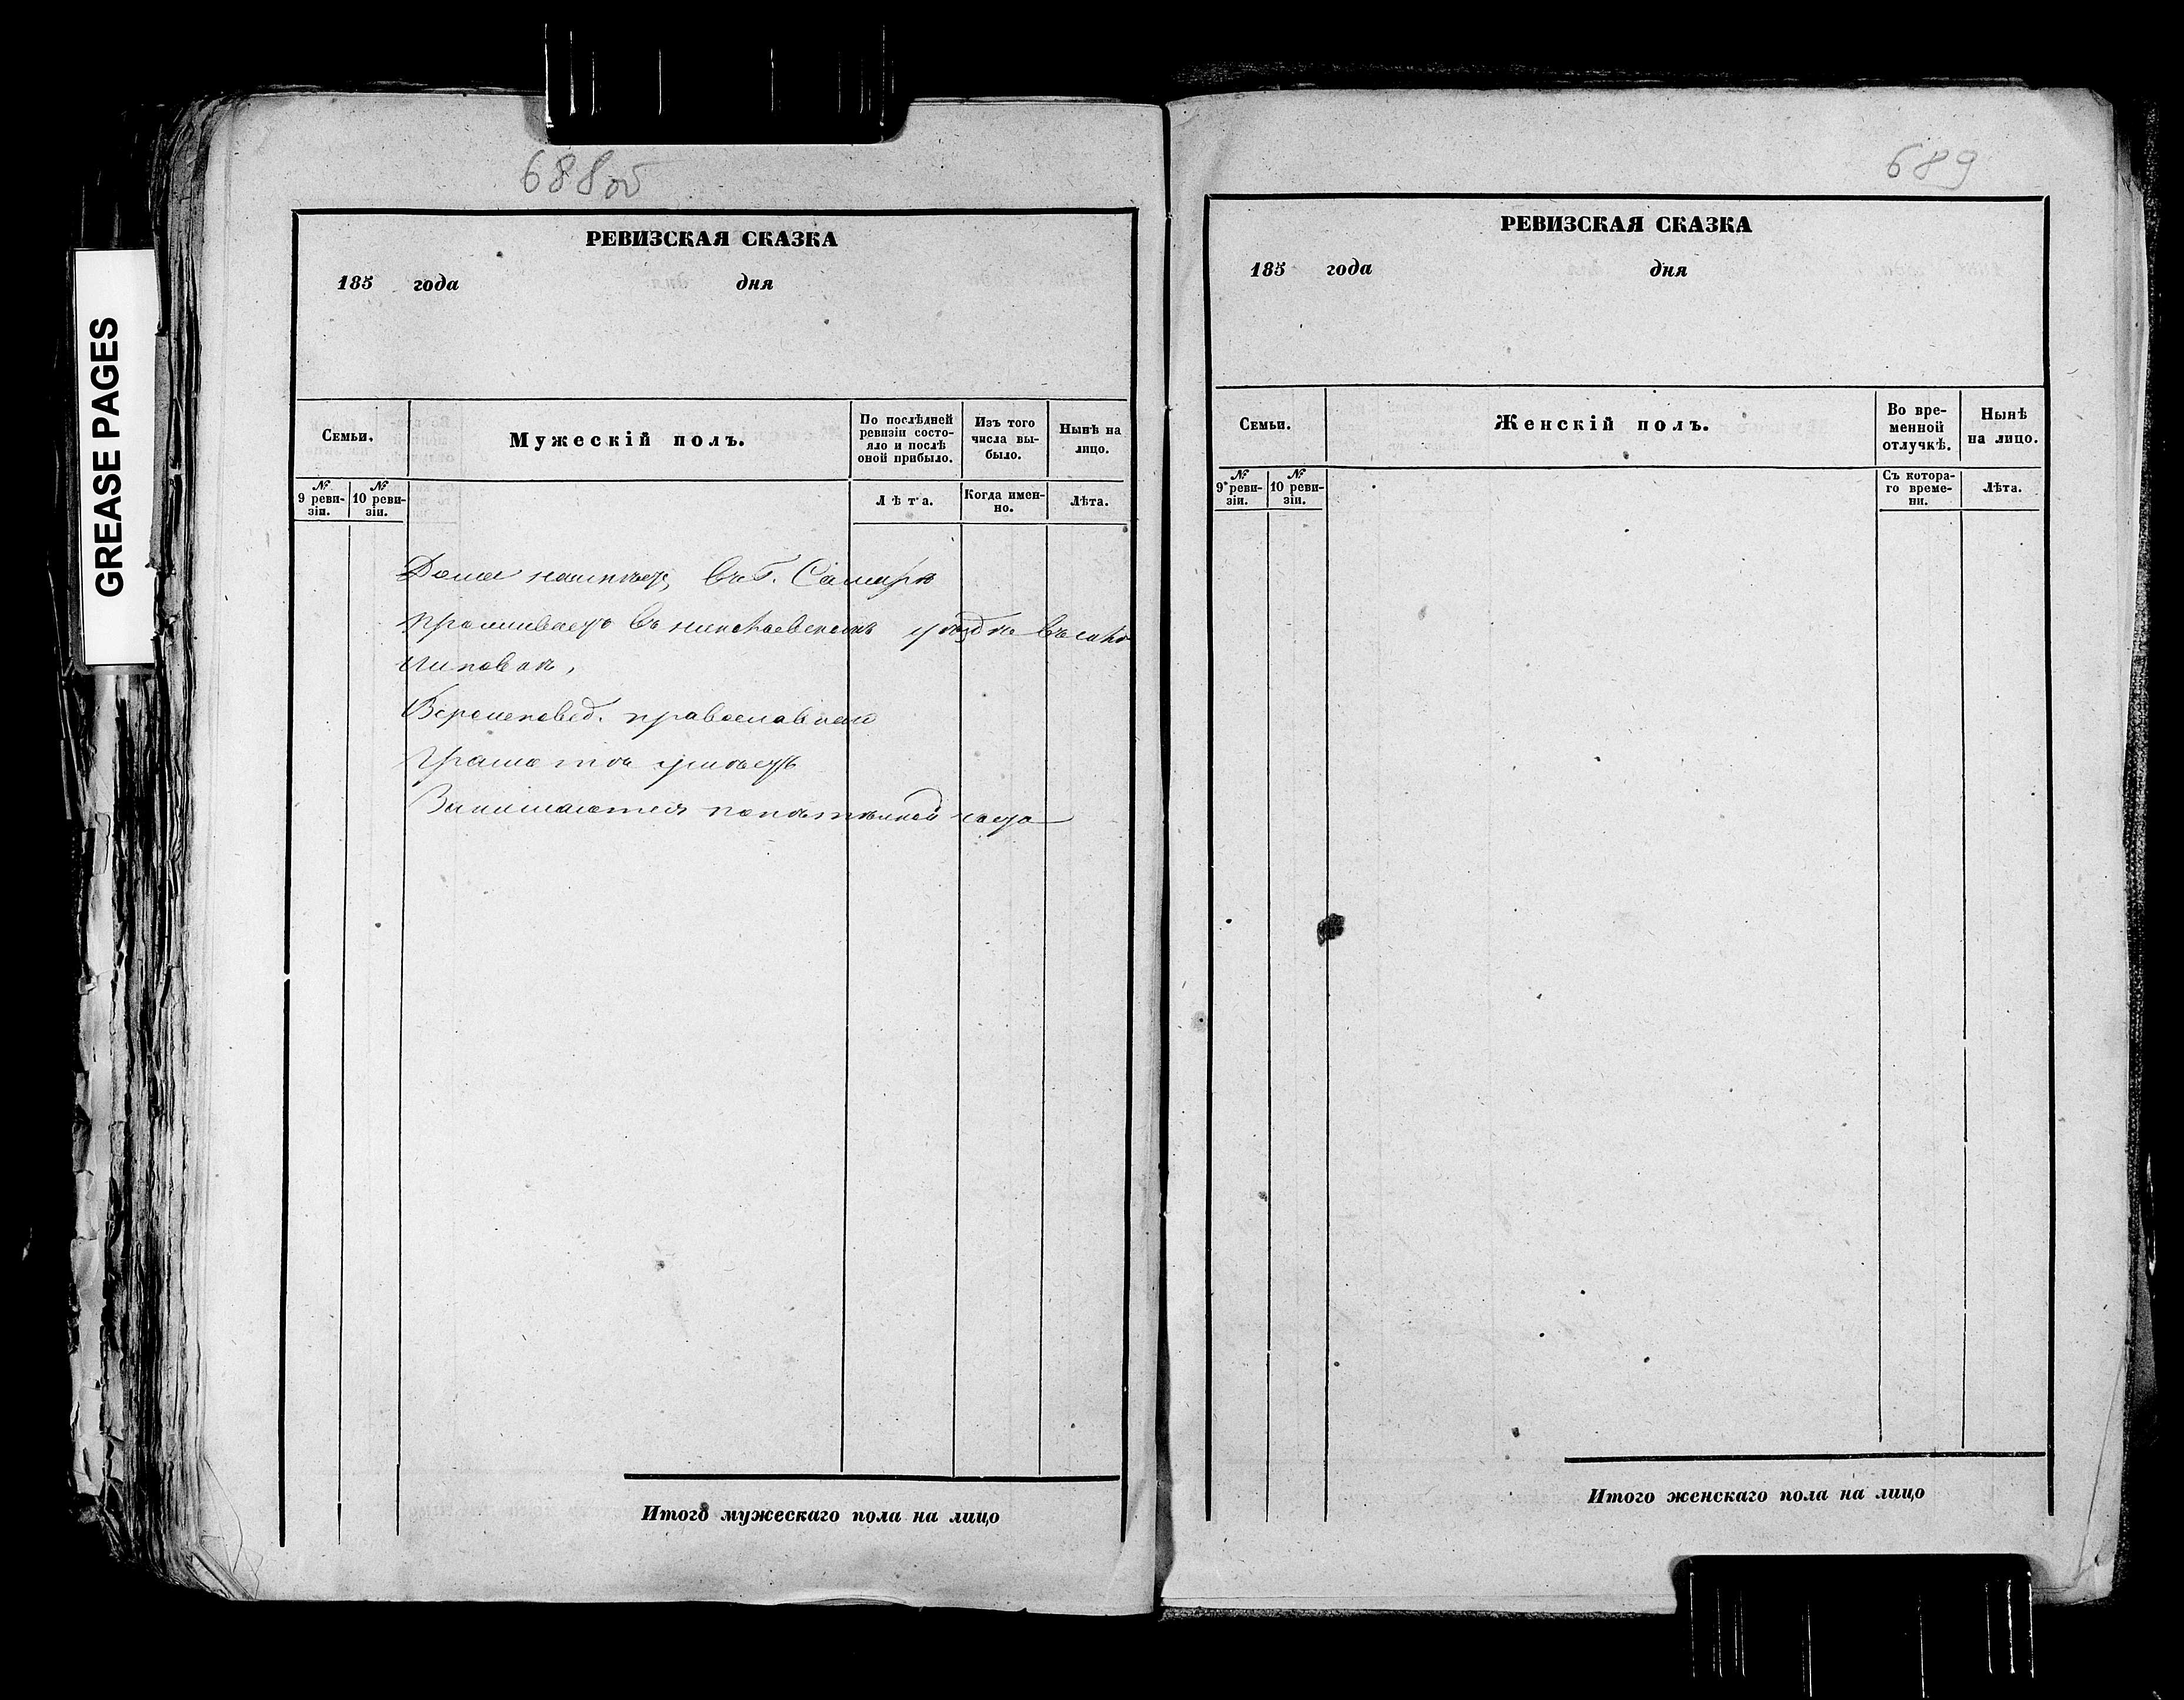 GREASE PAGES
688об
РЕВИЗСКАЯ СКАЗКА
185 года дня
Семьи.
Мужескій полъ.
По послѣдней ревизіи состо-
яло и послѣ оной прибыло.
Изъ того числа вы-
было.
Нынѣ на лицо.
№ 9 реви-
зіи.
№ 10 реви-
зіи.
Лѣта.
Когда имен-
но.
Лѣта.
Дома неимѣетъ въ Г. Самарѣ
проживаетъ въ николаевскомъ уѣздѣ въ селѣ
Вѣроисповед. православнаго
Грамотѣ умѣетъ
Занимается
Итого мужескаго пола на лицо
689
РЕВИЗСКАЯ СКАЗКА
185 года дня
Семьи.
Женскій полъ.
Во вре-
менной
отлучкѣ.
Нынѣ
на лицо.
№ 9 реви-
зіи.
№ 10 реви-
зіи.
Съ котора-
го време-
ни.
Лѣта.
Итого женскаго пола на лицо